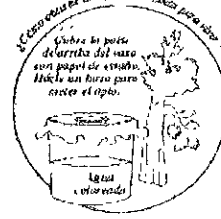 ¿Cómo para vivir?
Cubra la parte
de arriba del vaso
con papel de estaño.
Hágle un hueco para
meter el apio.
Agua
coloreada